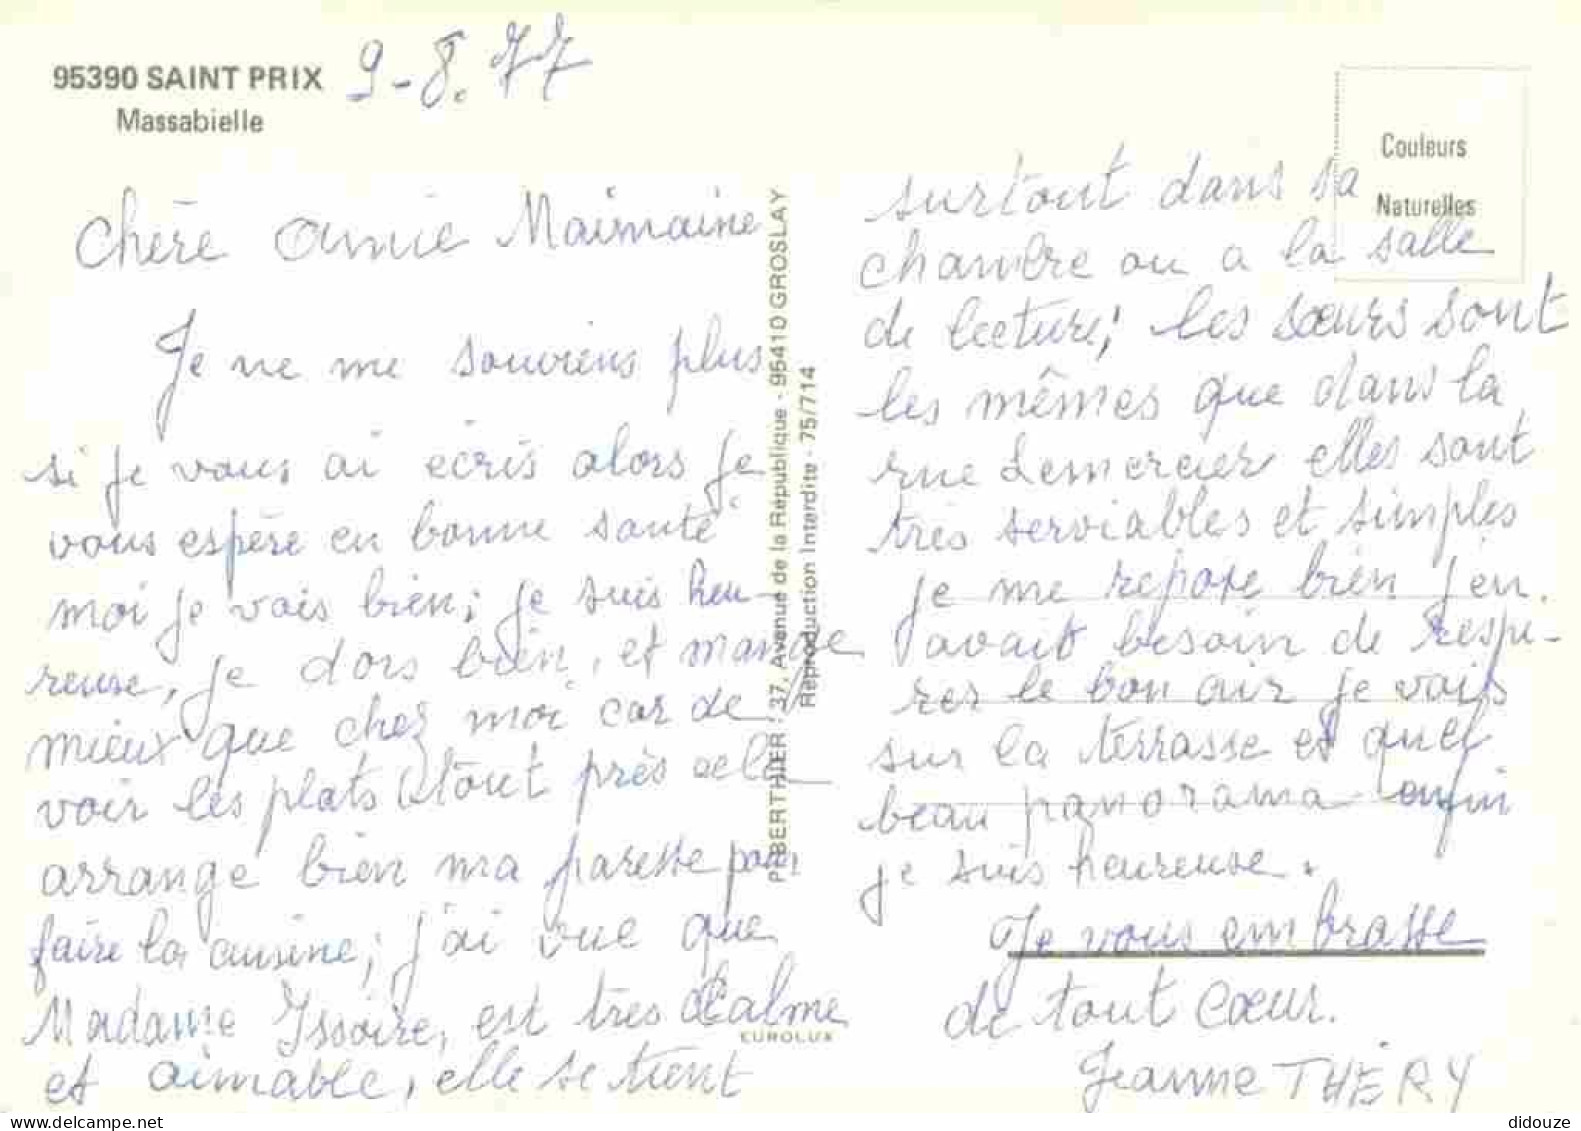 95390 SAINT PRIX
Massabielle
9-8.77
Chère amie Maimaine
Je ne me souviens plus
si je vous ai écris alors je
vous espère en bonne santé
moi je vais bien; je suis heu-
reuse, je dors bien, et mange
mieux que chez moi car de
voir les plats tout près cela
arrange bien ma paresse pour
faire la cuisine; j'ai vue que
Madame Issoire, est très calme
et aimable, elle se tient
P. BERTHIER - 37, Avenue de la République - 95410 GROSLAY
Reproduction Interdite - 75/714
EUROLUX
Couleurs
Naturelles
surtout dans sa
chambre ou a la salle
de lecture; les sœurs sont
les mêmes que dans la
rue Lemercier elles sont
très serviables et simples
je me repose bien j'en
avait besoin de respi-
rer le bon air je vais
sur la terrasse et quel
beau panorama enfin
je suis heureuse.
Je vous embrasse
de tout cœur.
Jeanne THÉRY
didouze